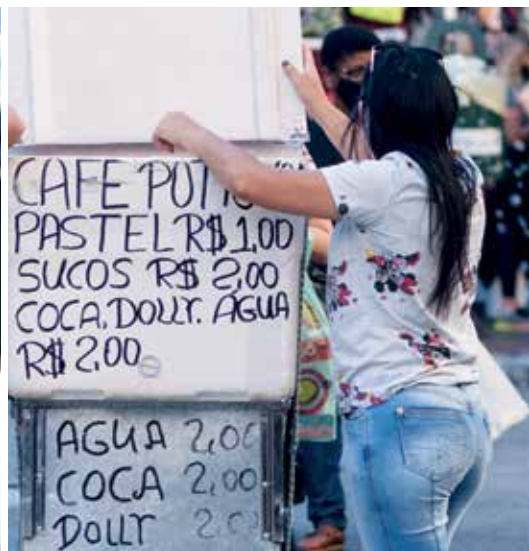 CAFE
PASTEL R$ 1,00
SUCOS R$ 2,00
COCA. DOLLY. ÁGUA
R$ 2,00
AGUA 2,00
COCA 2,00
DOLLY 2,00